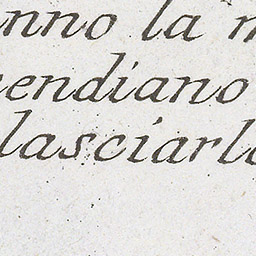 nno la
endiano
lasciarl